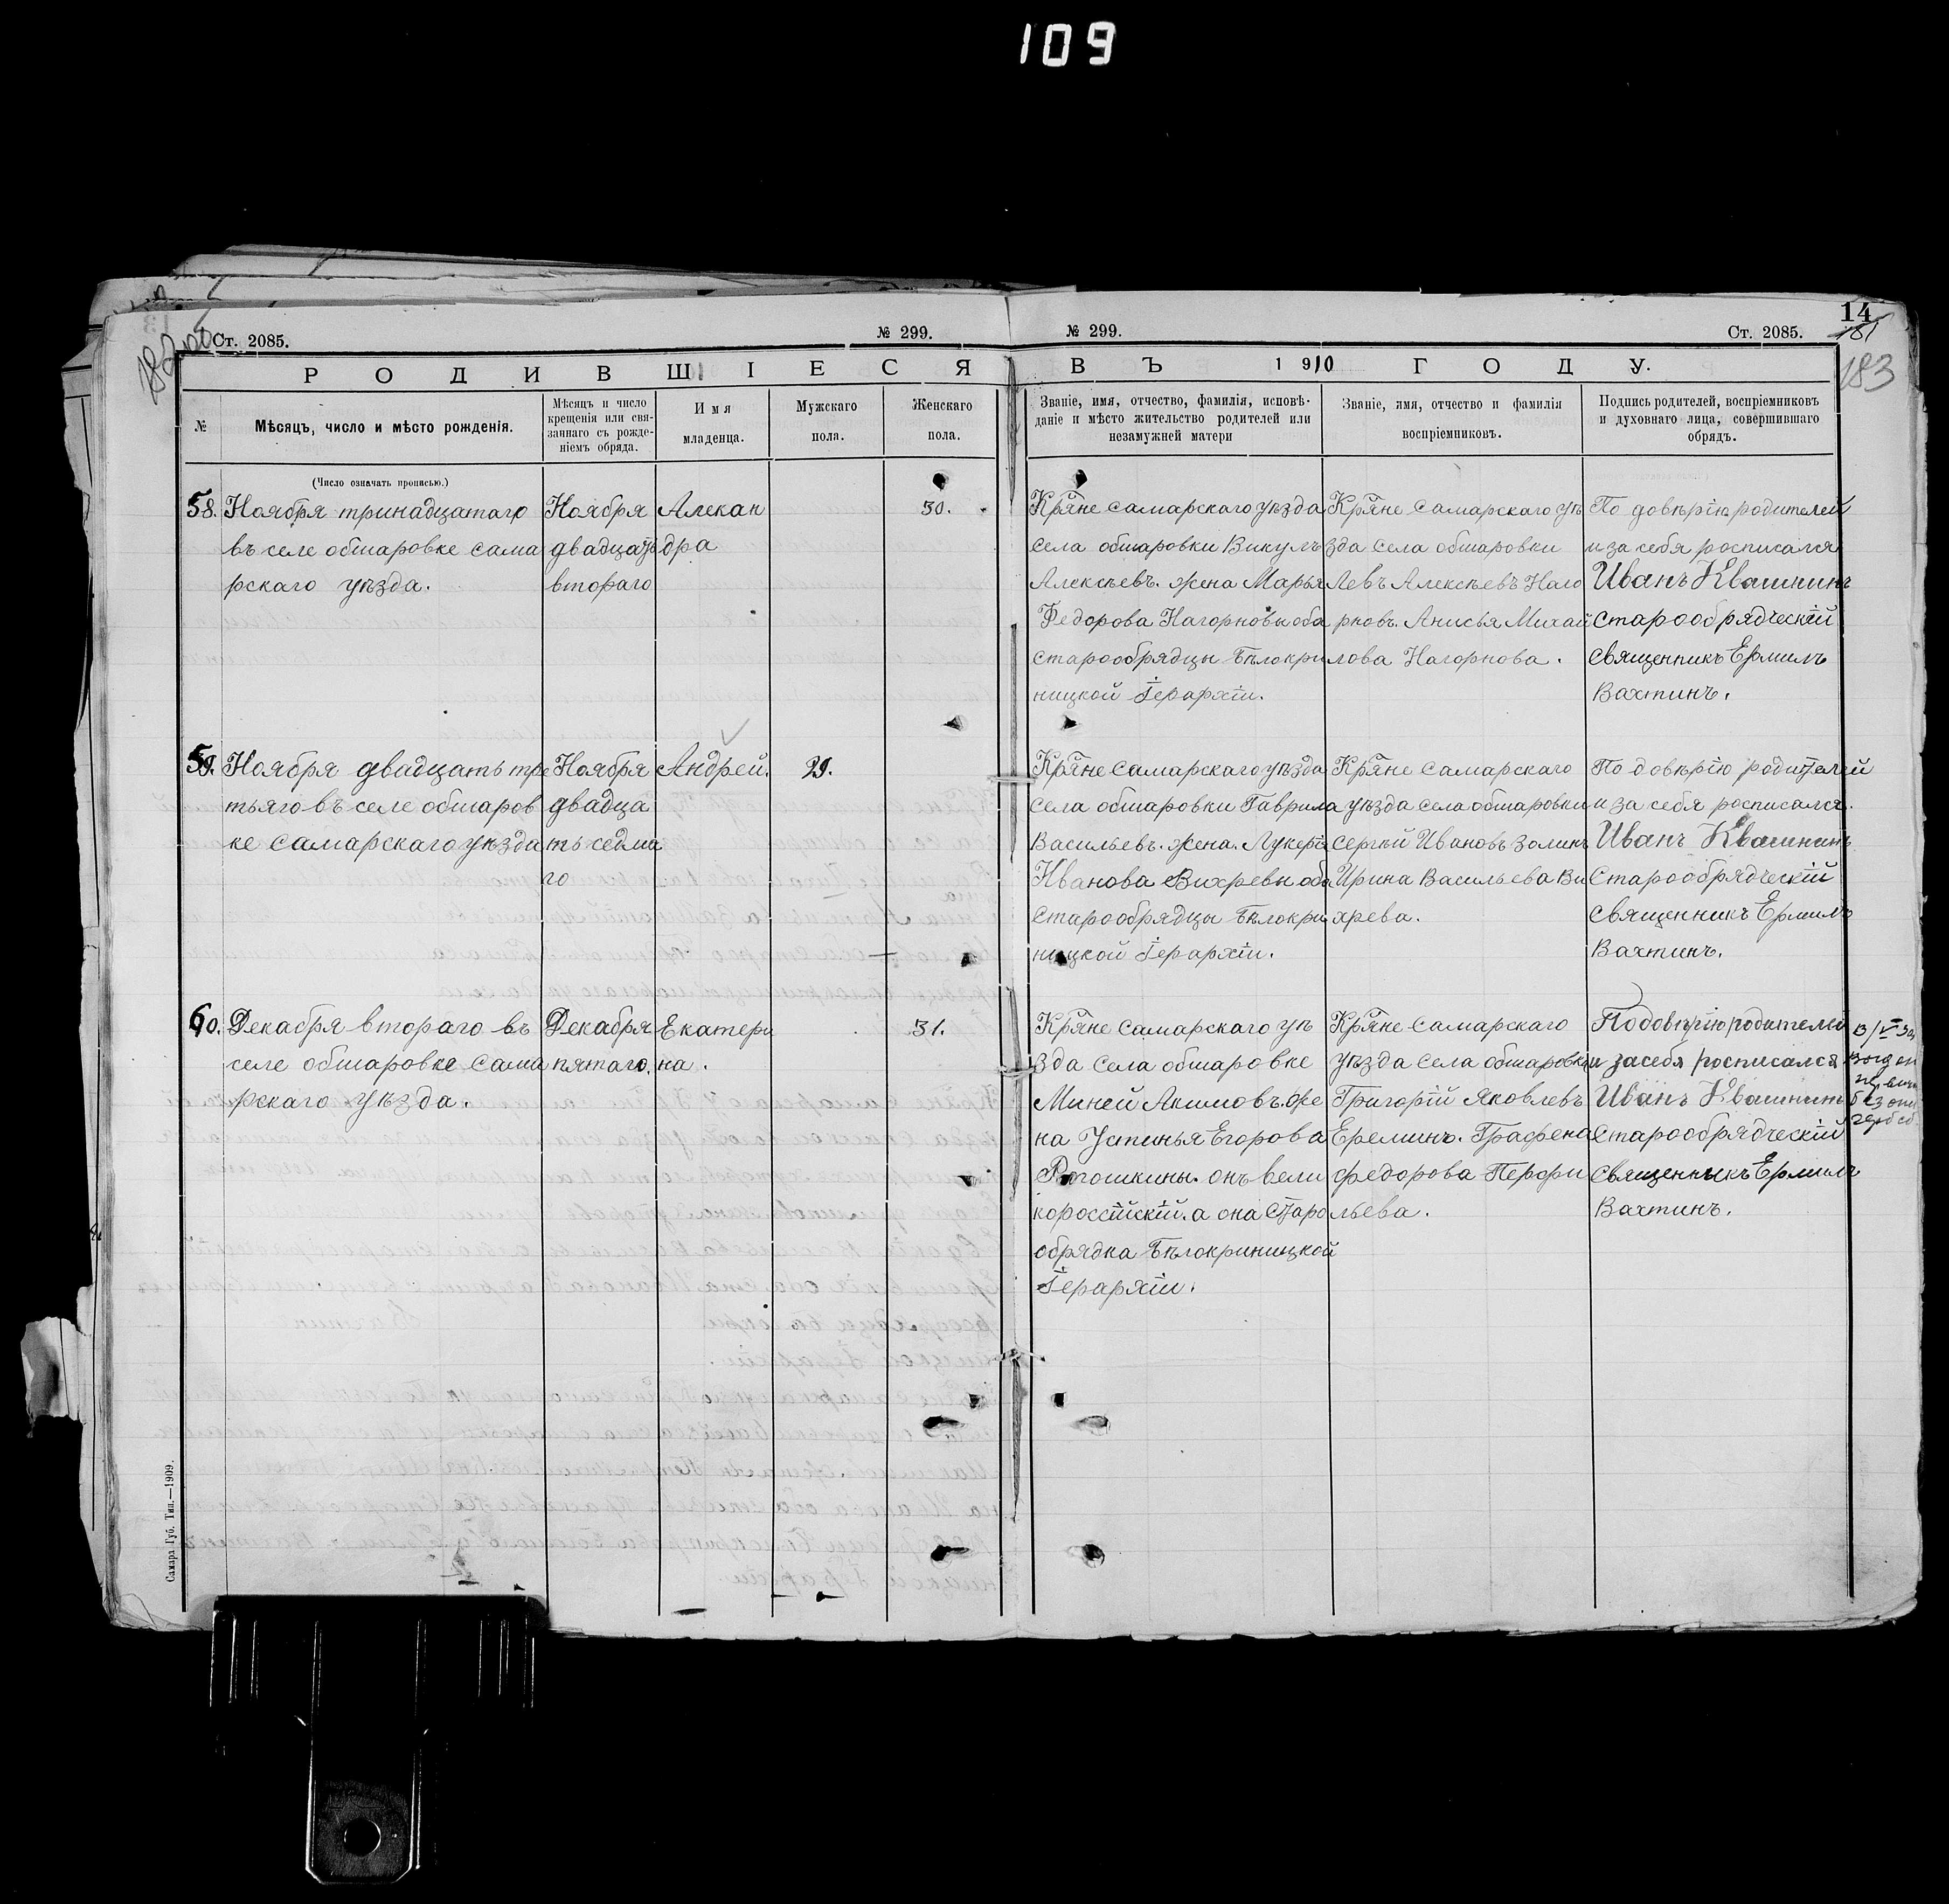 109
Ст. 2085.
№ 299.
№ 299.
Ст. 2085.
14
181
183
РОДИВШІЕСЯ
ВЪ 1910 ГОДУ.
№
Мѣсяцъ, число и мѣсто рожденія.
Мѣсяцъ и число
крещенія или свя-
заннаго съ рожде-
ніемъ обряда.
Имя
младенца.
Мужскаго
пола.
Женскаго
пола.
Званіе, имя, отчество, фамилія, исповѣ-
даніе и мѣсто жительство родителей или
незамужней матери
Званіе, имя, отчество и фамилія
воспріемниковъ.
Подпись родителей, воспріемниковъ
и духовнаго лица, совершившаго
обрядъ.
(Число означать прописью.)
58.
Ноября тринадцатаго
въ селе обшаровке сама
рскаго уѣзда.
Ноября
двадцать
втораго
Алекан
дра
30.
Кряне самарскаго уѣзда
села обшаровки Викулъ
Алексѣевъ. жена Марья
Федорова Нагорновы оба
старообрядцы Бѣлокри
ницкой Іерархіи.
Кряне Самарскаго уѣ
зда села обшаровки
Левъ Алексѣевъ Наго
рновъ. Анисья Михай
лова Нагорнова.
По довѣрію родителей
и за себя росписался
Иванъ Квашнинъ
Старообрядческій
Священникъ Ермилъ
Вахтинъ.
59.
Ноября двадцать тре
тьяго въ селе обшаров
ке самарскаго уѣзда
Ноября
двадца
ть седма
го
Андрей.
29.
Кряне самарскаго уѣзда
села обшаровки Гаврила
Васильевъ. жена. Лукерія
Иванова Вихревы оба
Старообрядцы Бѣлокри
ницкой Іерархіи.
Кряне самарскаго
уѣзда села обшаровки
Сергѣй Ивановъ Золинъ
Ирина Васильева Ви
хрева.
По довѣрію родителей
и за себя росписался.
Иванъ Квашнинъ
Старообрядческій
Священникъ Ермилъ
Вахтинъ.
60.
Декабря втораго въ
селе обшаровке сама
рскаго уѣзда.
Декабря
пятаго.
Екатери
на.
31.
Кряне самарскаго уѣ
зда села обшаровке
Миней Акимовъ. же
на Устинья Егорова
Рогошкины. онъ вели
королссійскій. а она Старо
обрядка Бѣлокриницкой
Іерархіи.
Кряне самарскаго
уѣзда села обшаровки
Григорій Яковлевъ
Ереминъ. Графена
федорова Перфи
льева.
По довѣрію родителей
и за себя росписался
Иванъ Квашнинъ
Старообрядческій
Священникъ Ермилъ
Вахтинъ.
Самара Губ. Тип.—1909.